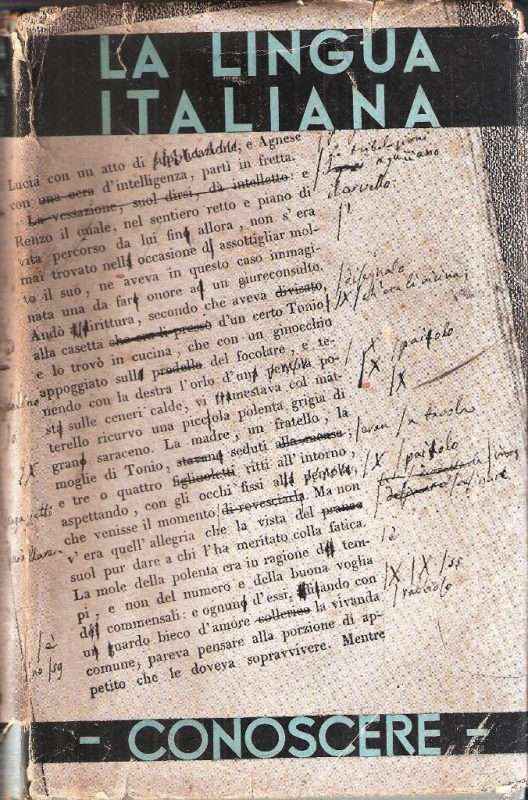 LA LINGUA
ITALIANA
Lucia con un atto di e Agnese
con una cera d'intelligenza, partì in fretta.
La vessazione, suol dirsi, dà intelletto: e
Renzo il quale, nel sentiero retto e piano di
vita percorso da lui fino allora, non s'era
mai trovato nell' occasione di assottigliar mol-
to il suo, ne aveva in questo caso immagi-
nata una da far onore ad un giureconsulto.
Andò a dirittura, secondo che aveva divisato,
alla casetta d'un certo Tonio
e lo trovò in cucina, che con un ginocchio
appoggiato sulla predella del focolare, e te-
nendo con la destra l'orlo d'una pentola po-
sta sulle ceneri calde, vi tramestava col mat-
terello ricurvo una picciola polenta grigia di
grano saraceno. La madre, un fratello, la
moglie di Tonio, stavano seduti alla mensa;
e tre o quattro figlioletti ritti all'intorno,
aspettando, con gli occhi fissi alla pentola,
che venisse il momento di rovesciarla. Ma non
v'era quell'allegria che la vista del pranzo
suol pur dare a chi l'ha meritato colla fatica.
La mole della polenta era in ragione dei tem-
pi, e non del numero e della buona voglia
dei commensali: e ognuno d'essi, con
un guardo bieco d'amore collerico la vivanda
comune, pareva pensare alla porzione di ap-
petito che le doveva sopravvivere. Mentre
tribolazioni
aguzzano
il cervello
disegnato
paiolo
a tavola
paiolo
- CONOSCERE -